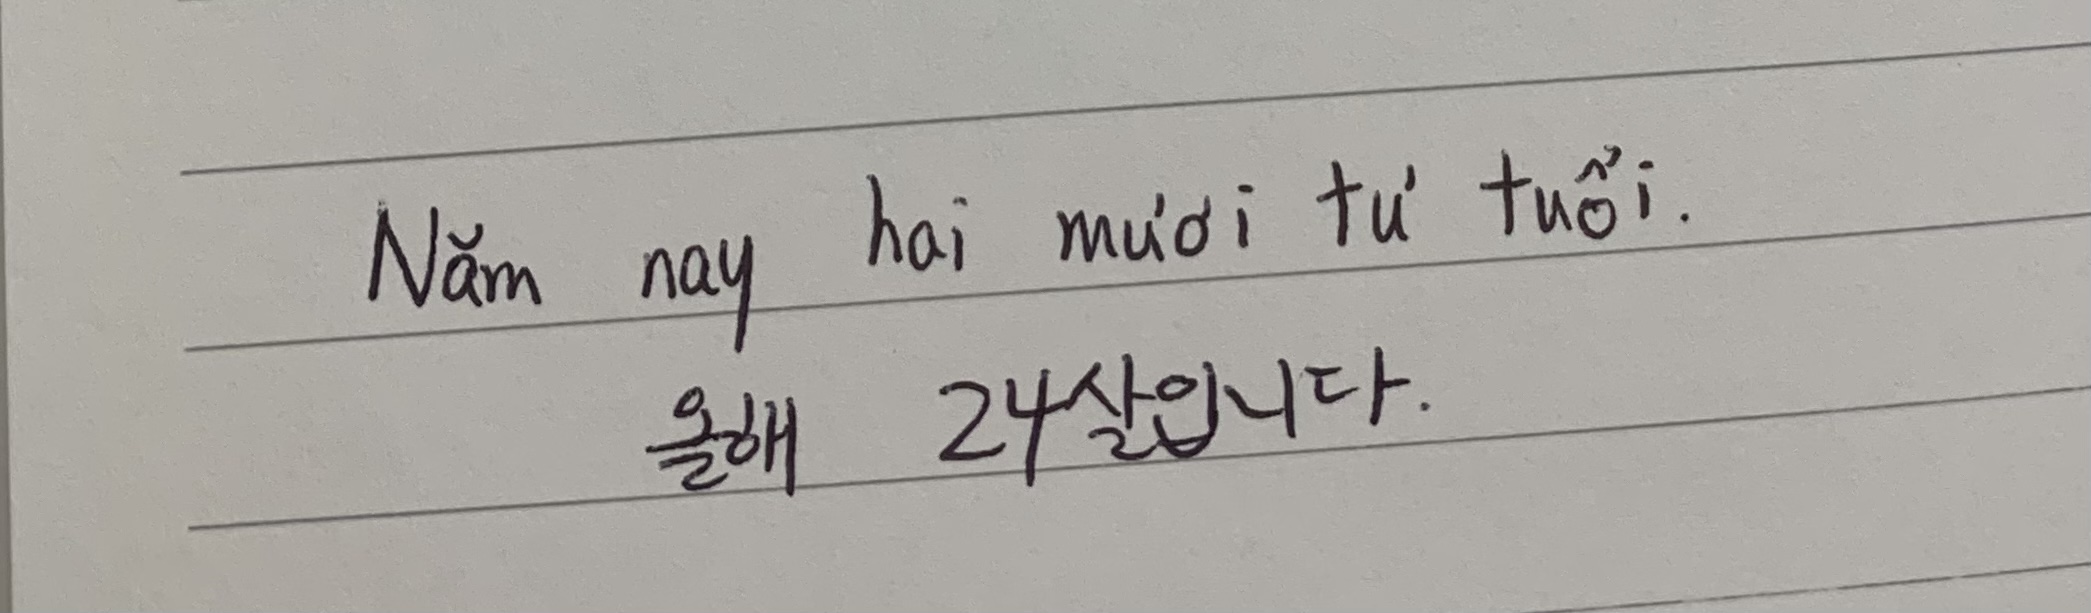 Năm nay hai mươi tư tuổi.
올해 24살입니다.